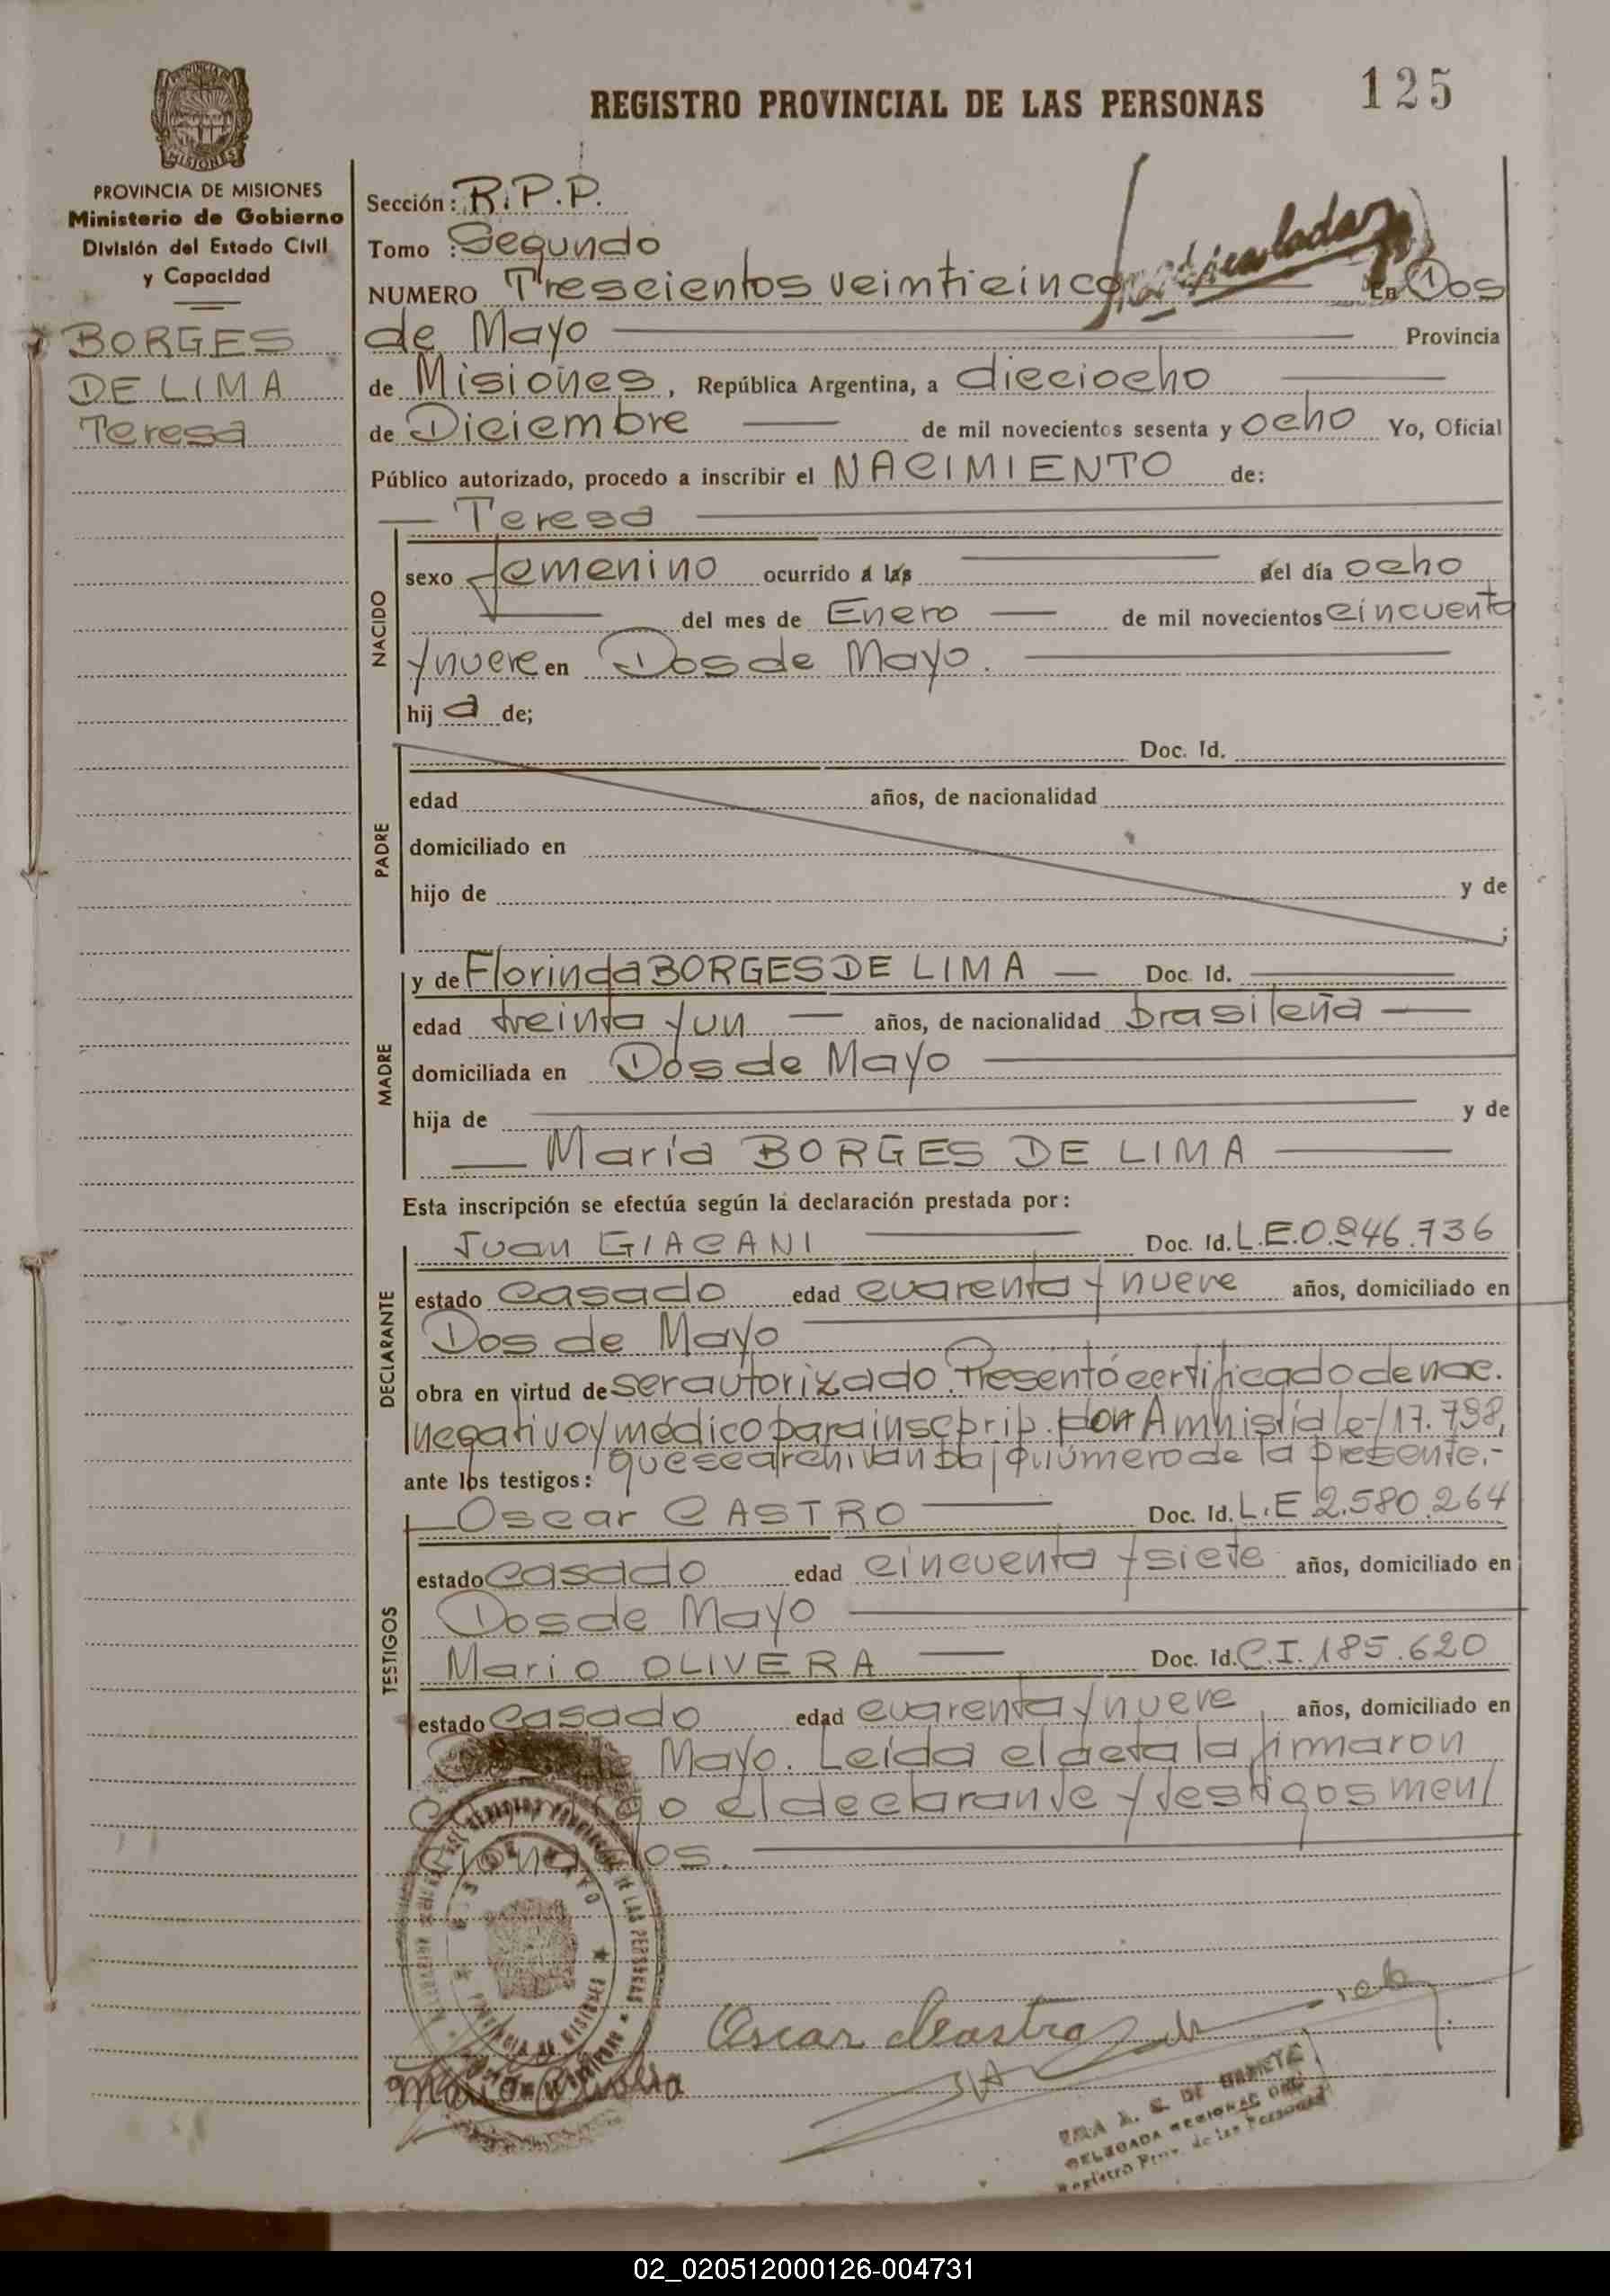 REGISTRO PROVINCIAL DE LAS PERSONAS
125
MISIONES
PROVINCIA DE MISIONES
Ministerio de Gobierno
División del Estado Civil
y Capacidad
BORGES
DE LIMA
Teresa
Sección: R.P.P.
Tomo: Segundo
NUMERO Trescientos veinticinco En Dos
de Mayo Provincia
de Misiones, República Argentina, a dieciocho
de Diciembre de mil novecientos sesenta y ocho Yo, Oficial
Público autorizado, procedo a inscribir el NACIMIENTO de:
Teresa
NACIDO
sexo femenino ocurrido a las del día ocho
del mes de Enero de mil novecientos cincuenta
y nueve en Dos de Mayo.
hij a de;
PADRE
Doc. Id.
edad años, de nacionalidad
domiciliado en
hijo de y de
;
MADRE
y de Florinda BORGES DE LIMA Doc. Id.
edad treinta y un años, de nacionalidad brasileña
domiciliada en Dos de Mayo
hija de y de
María BORGES DE LIMA
Esta inscripción se efectúa según la declaración prestada por:
DECLARANTE
Juan GIACANI Doc. Id. L.E.0.846.736
estado casado edad cuarenta y nueve años, domiciliado en
Dos de Mayo
obra en virtud de ser autorizado. Presentó certificado de nac.
negativo y médico para inscbrip. por Amnistía le-/17.798,
ante los testigos: que se archivan baj números de la presente.-
TESTIGOS
Oscar CASTRO Doc. Id. L.E 2.580.264
estado casado edad cincuenta y siete años, domiciliado en
Dos de Mayo
Mario OLIVERA Doc. Id. C.I. 185.620
estado casado edad cuarenta y nueve años, domiciliado en
Mayo. Leída el acta la firmaron
go el declarante y testigos men/
cionados.
Oscar Castro
DELEGADA REGIONAL
Registro Prov. de las Personas
02_020512000126-004731